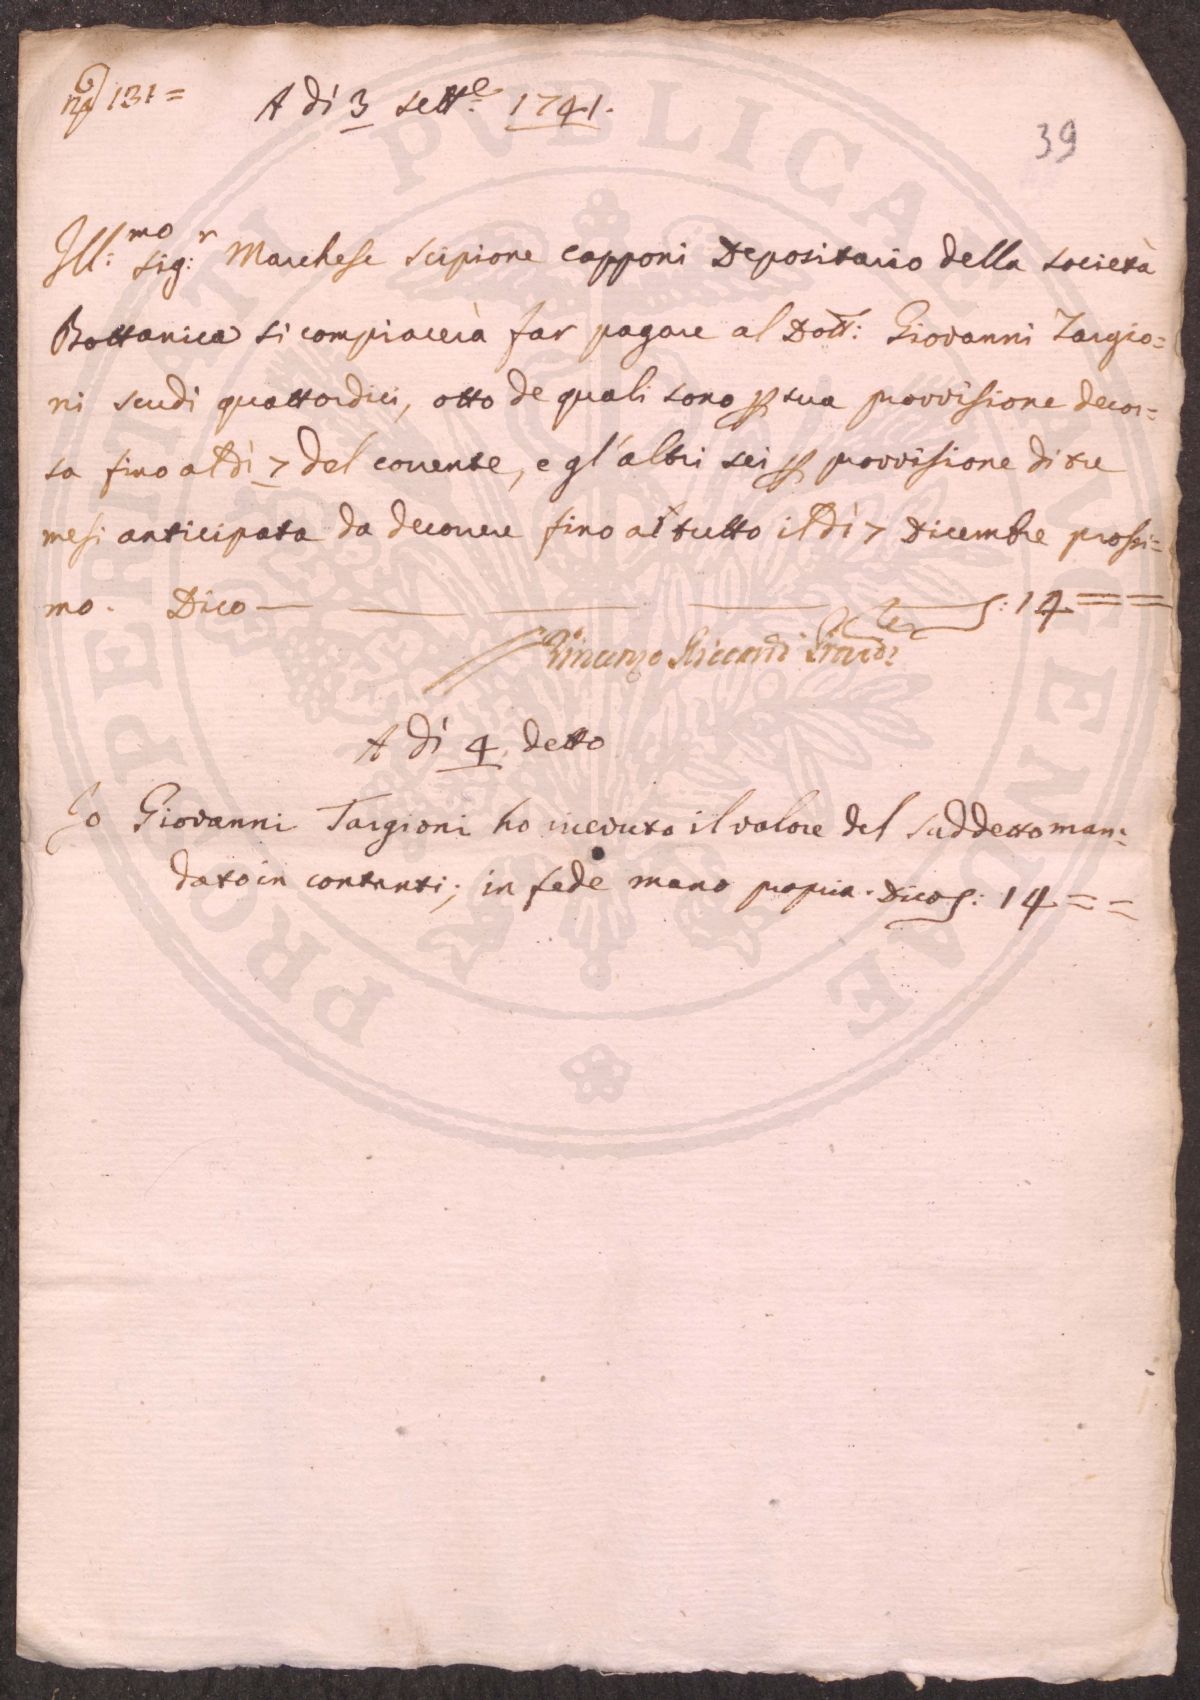 nº 131 =
A dì 3 Sett.e 1741.
39
Ill:mo Sig:r Marchese Scipione Capponi Depositario della Società
Bottanica si compiacerà far pagare al Dott: Giovanni Targio=
ni scudi quattordici, otto de quali sono p sua provvisione decor=
sa fino al dì 7 del corrente, e gl'altri sei p provvisione di tre
mesi anticipata da decorrere fino al tutto il dì 7 Dicembre prossi=
mo. Dico — : 14 = =
Vincenzo Riccardi
A dì 4. detto
Io Giovanni Targioni ho ricevuto il valore del suddetto man=
dato in contanti; in fede mano propria. Dico : 14 = =
PROSPERITATI PVBLICAE AVGENDAE